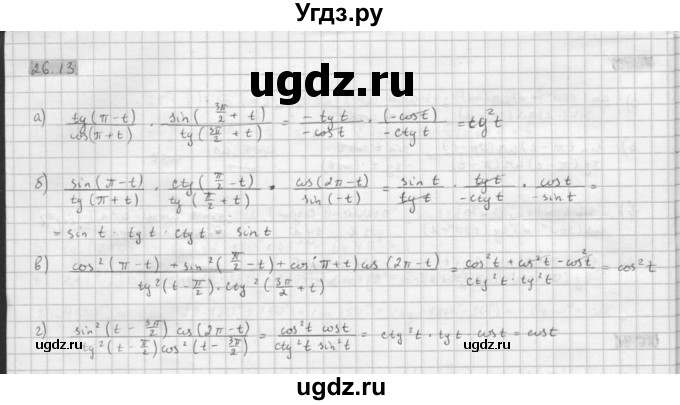 Угдз.ру
26.13
ugdz.ru
а) tg(π-t)/cos(π+t) · sin(3π/2 + t)/tg(3π/2 + t) = -tg t/-cos t · (-cos t)/-ctg t = tg²t
б) sin(π-t)/tg(π+t) · ctg(π/2 - t)/tg(π/2 + t) · cos(2π-t)/sin(-t) = sin t/tg t · tg t/-ctg t · cos t/-sin t =
= sin t · tg t · ctg t = sin t
в) cos²(π-t) + sin²(π/2 - t) + cos(π+t) cos(2π-t)/tg²(t - π/2) · ctg²(3π/2 + t) = cos²t + cos²t - cos²t/ctg²t · tg²t = cos²t
г) sin²(t - 3π/2) cos(2π-t)/tg²(t - π/2) cos²(t - 3π/2) = cos²t cos t/ctg²t sin²t = ctg²t · tg t · cos t = cos t
ugdz.ru
ugdz.ru
ugdz.ru